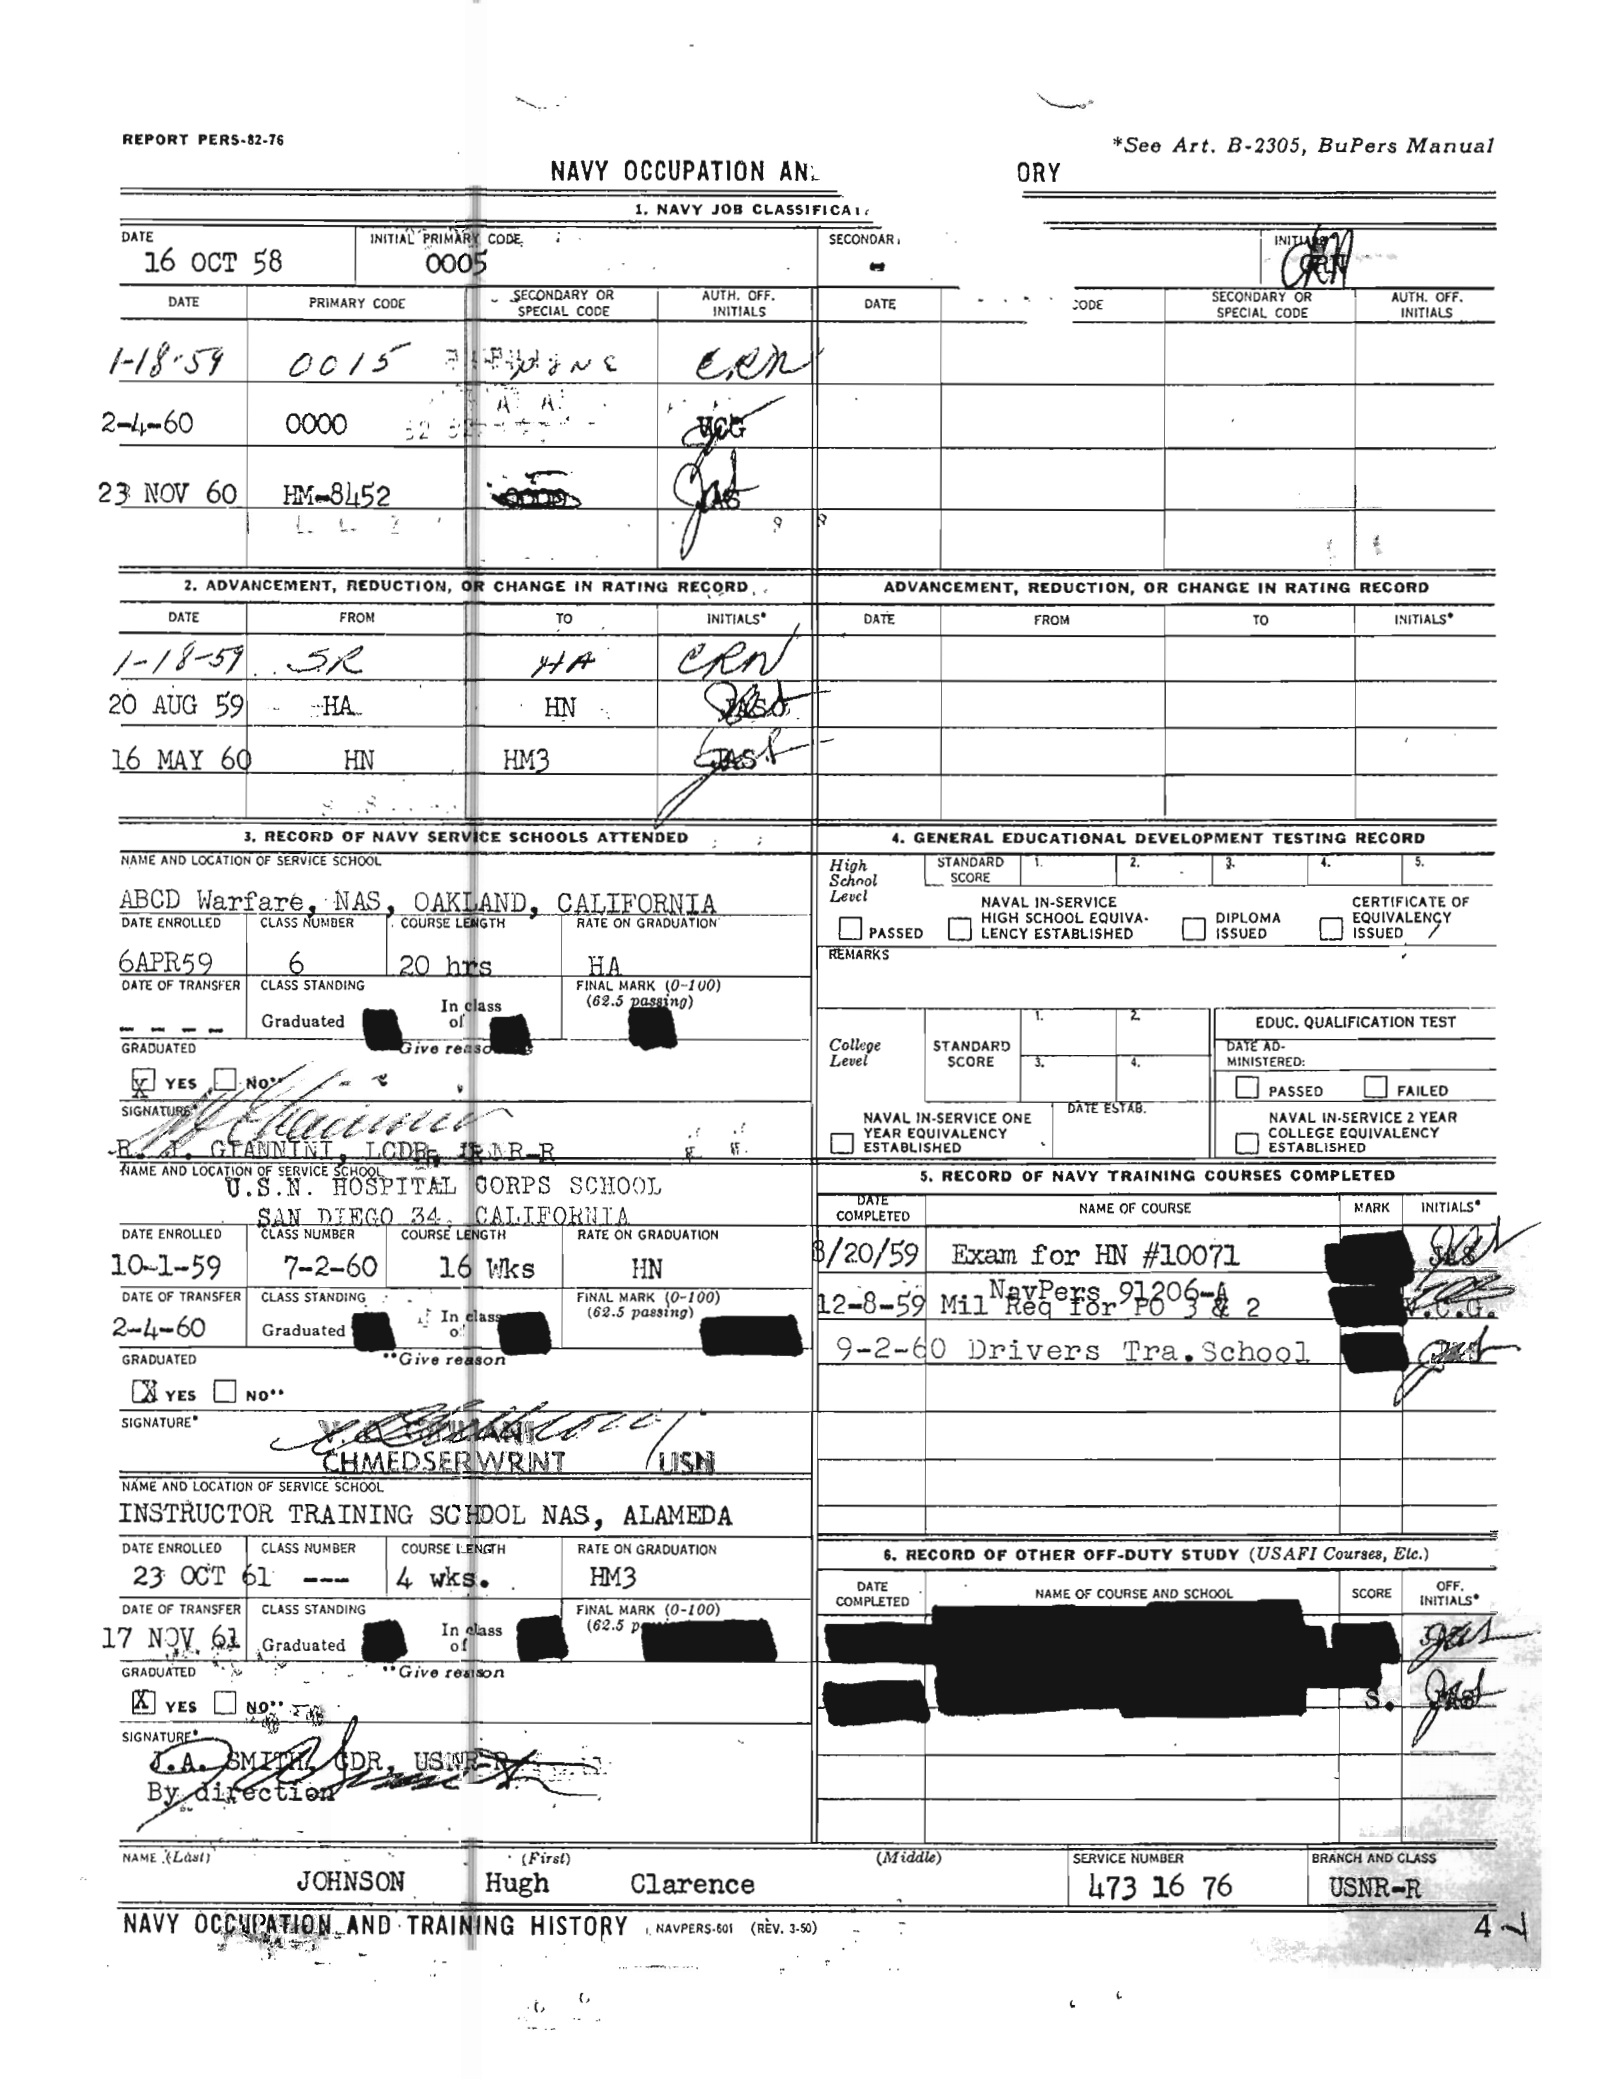 REPORT PERS-82-76
*See Art. B-2305, BuPers Manual
NAVY OCCUPATION AN ORY
1. NAVY JOB CLASSIFICATI
DATE INITIAL PRIMARY CODE SECONDAR INITIALS
16 OCT 58 0005 - CRN
DATE PRIMARY CODE SECONDARY OR SPECIAL CODE AUTH. OFF. INITIALS DATE CODE SECONDARY OR SPECIAL CODE AUTH. OFF. INITIALS
1-18-59 0015 CRN
2-4-60 0000 VCG
23 NOV 60 HM-8452 JAS
2. ADVANCEMENT, REDUCTION, OR CHANGE IN RATING RECORD
ADVANCEMENT, REDUCTION, OR CHANGE IN RATING RECORD
DATE FROM TO INITIALS* DATE FROM TO INITIALS*
1-18-59 SR HA CRN
20 AUG 59 HA HN JAS
16 MAY 60 HN HM3 JAS
3. RECORD OF NAVY SERVICE SCHOOLS ATTENDED
NAME AND LOCATION OF SERVICE SCHOOL
ABCD Warfare, NAS, OAKLAND, CALIFORNIA
DATE ENROLLED CLASS NUMBER COURSE LENGTH RATE ON GRADUATION
6APR59 6 20 hrs HA
DATE OF TRANSFER CLASS STANDING FINAL MARK (0-100)
(62.5 passing)
---- Graduated In class of
GRADUATED Give reason
X YES NO**
SIGNATURE*
R. J. GIANNINI, LCDR, USNR-R
NAME AND LOCATION OF SERVICE SCHOOL
U.S.N. HOSPITAL CORPS SCHOOL
SAN DIEGO 34, CALIFORNIA
DATE ENROLLED CLASS NUMBER COURSE LENGTH RATE ON GRADUATION
10-1-59 7-2-60 16 Wks HN
DATE OF TRANSFER CLASS STANDING FINAL MARK (0-100)
(62.5 passing)
2-4-60 Graduated In class of
GRADUATED **Give reason
X YES NO**
SIGNATURE*
CHMEDSERWRNT USN
NAME AND LOCATION OF SERVICE SCHOOL
INSTRUCTOR TRAINING SCHOOL NAS, ALAMEDA
DATE ENROLLED CLASS NUMBER COURSE LENGTH RATE ON GRADUATION
23 OCT 61 --- 4 wks. HM3
DATE OF TRANSFER CLASS STANDING FINAL MARK (0-100)
(62.5 p
17 NOV 61 Graduated In class of
GRADUATED **Give reason
X YES NO**
SIGNATURE*
J.A. SMITH, CDR, USNR-R
By direction
4. GENERAL EDUCATIONAL DEVELOPMENT TESTING RECORD
High School Level STANDARD SCORE 1. 2. 3. 4. 5.
PASSED
NAVAL IN-SERVICE HIGH SCHOOL EQUIVA-LENCY ESTABLISHED
DIPLOMA ISSUED
CERTIFICATE OF EQUIVALENCY ISSUED
REMARKS
College Level STANDARD SCORE 1. 2. 3. 4.
EDUC. QUALIFICATION TEST
DATE AD-MINISTERED:
PASSED FAILED
NAVAL IN-SERVICE ONE YEAR EQUIVALENCY ESTABLISHED
DATE ESTAB.
NAVAL IN-SERVICE 2 YEAR COLLEGE EQUIVALENCY ESTABLISHED
5. RECORD OF NAVY TRAINING COURSES COMPLETED
DATE COMPLETED NAME OF COURSE MARK INITIALS*
8/20/59 Exam for HN #10071 JAS
NavPers 91206-A
12-8-59 Mil Req for PO 3 & 2 V.C.G.
9-2-60 Drivers Tra.School
6. RECORD OF OTHER OFF-DUTY STUDY (USAFI Courses, Etc.)
DATE COMPLETED NAME OF COURSE AND SCHOOL SCORE OFF. INITIALS*
S. JAS
NAME (Last) (First) (Middle) SERVICE NUMBER BRANCH AND CLASS
JOHNSON Hugh Clarence 473 16 76 USNR-R
NAVY OCCUPATION AND TRAINING HISTORY NAVPERS-601 (REV. 3-50) 4